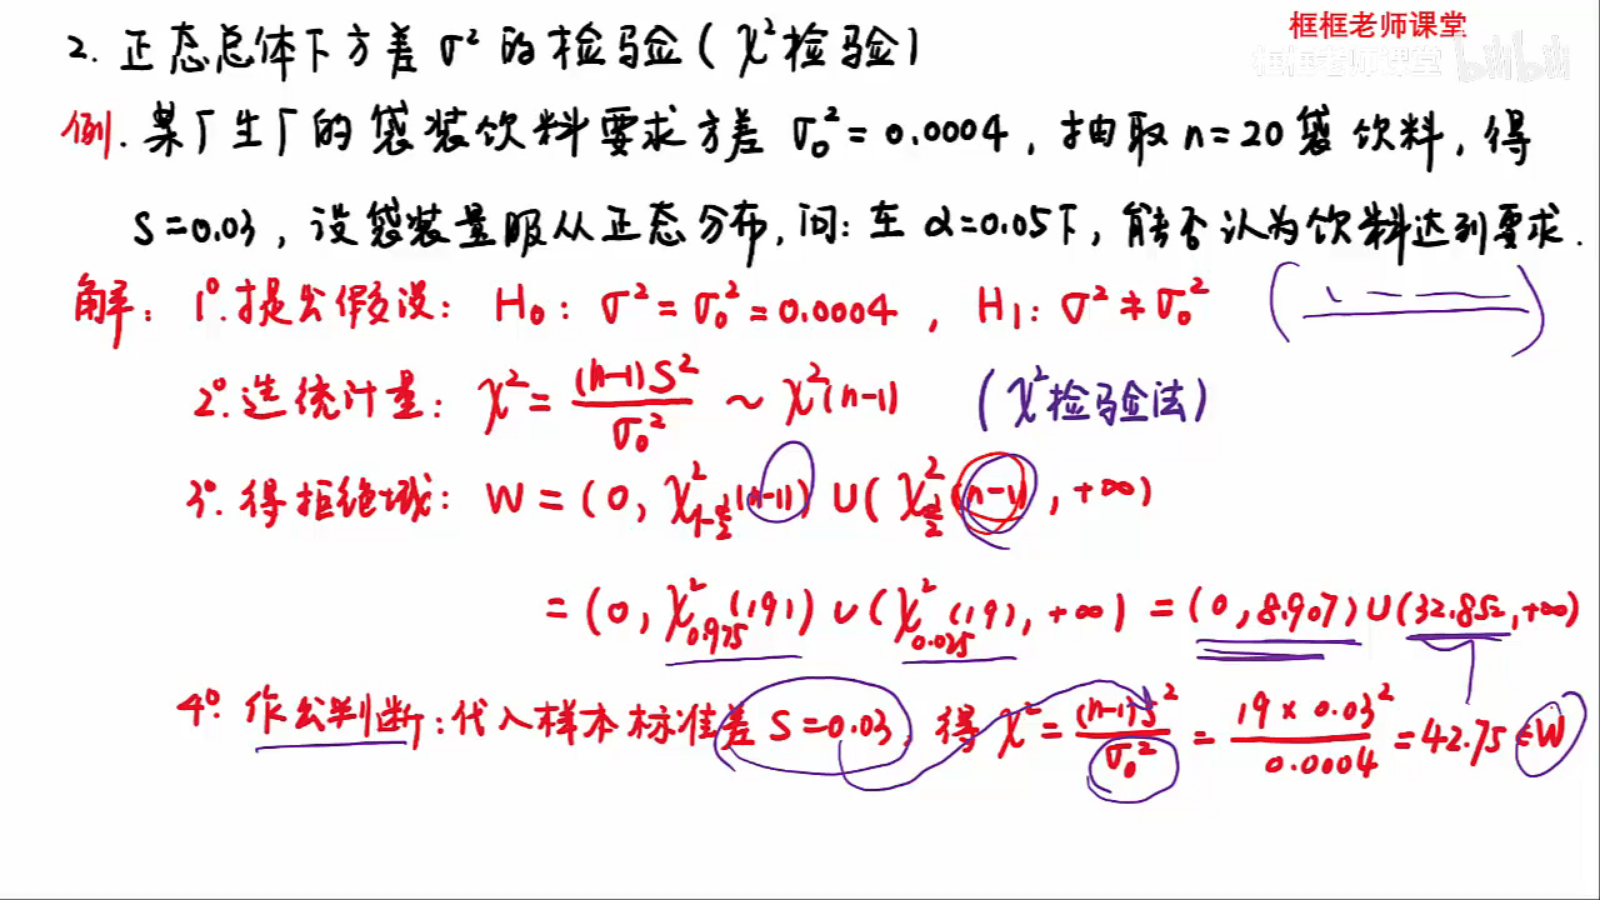 框框老师课堂
框框老师课堂 bilibili
2. 正态总体下方差 σ² 的检验 ( χ²检验 )
例. 某厂生厂的袋装饮料要求方差 σ₀² = 0.0004 , 抽取 n=20 袋饮料, 得
S=0.03 , 设袋装量服从正态分布, 问: 在 α=0.05下, 能否认为饮料达到要求.
解: 1°. 提出假设: H₀: σ² = σ₀² = 0.0004 , H₁: σ² ≠ σ₀²
2°. 选统计量: χ² = (n-1)S² / σ₀² ~ χ²(n-1) ( χ²检验法 )
3°. 得拒绝域: W = (0, χ²_{1-α/2}(n-1)) ∪ ( χ²_{α/2}(n-1), +∞)
= (0, χ²_{0.975}(19)) ∪ ( χ²_{0.025}(19), +∞) = (0, 8.907) ∪ (32.852, +∞)
4°. 作出判断: 代入样本标准差 S=0.03, 得 χ² = (n-1)S² / σ₀² = 19 × 0.03² / 0.0004 = 42.75 ∈ W